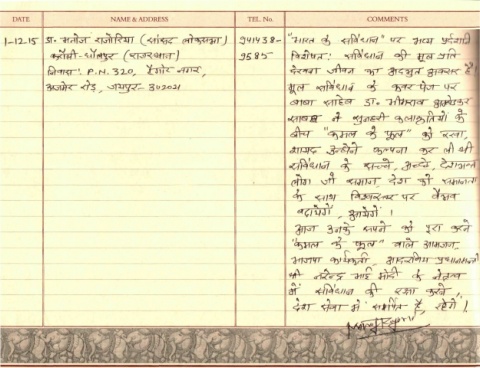 DATE NAME & ADDRESS TEL. No. COMMENTS
1-12-15
डा. मनोज राजोरिया (सांसद लोकसभा)
करौली-धौलपुर (राजस्थान)
निवास: P.N. 320, टैगोर नगर,
अजमेर रोड़, जयपुर- 302021
941438-
9585
"भारत के संविधान" पर भव्य प्रदर्शनी
संविधान की मूल प्रति
देखना जीवन का अदभुत अवसर है।
मूल संविधान के कवर पेज पर
बाबा साहेब डा. भीमराव अम्बेडकर
साहब ने सुनहरी कलाकृतियों के
बीच "कमल के फूल" को रखा,
शायद उन्होंने कल्पना कर ली थी
संविधान के सच्चे, अच्छे, देशभक्त
लोग जो समाज, देश को समानता
के साथ विश्वस्तर पर वैभव
बढायेगें, आयेगें।
आज उनके सपने को पूरा करने
"कमल के फूल" वाले आमजन,
भाजपा कार्यकर्ता, आदरणीय प्रधानमन्त्री
श्री नरेन्द्र भाई मोदी के नेतृत्व
में संविधान की रक्षा करने,
देश सेवा में समर्पित हैं, रहेगें।